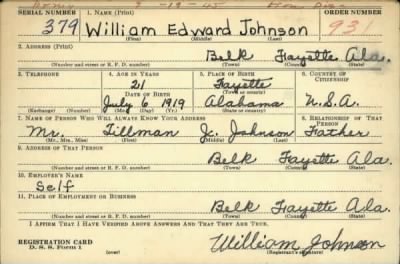 9-19-45
SERIAL NUMBER 1. NAME (Print) ORDER NUMBER
379 William Edward Johnson 931
(First) (Middle) (Last)
2. ADDRESS (Print)
Belk Fayette Ala.
(Number and street or R. F. D. number) (Town) (County) (State)
3. TELEPHONE 4. AGE IN YEARS 5. PLACE OF BIRTH 6. COUNTRY OF CITIZENSHIP
21 Fayette
DATE OF BIRTH (Town or county)
July 6, 1919 Alabama U.S.A.
(Exchange) (Number) (Mo.) (Day) (Yr.) (State or country)
7. NAME OF PERSON WHO WILL ALWAYS KNOW YOUR ADDRESS 8. RELATIONSHIP OF THAT PERSON
Mr. Tillman Johnson Father
(Mr., Mrs., Miss) (First) (Middle) (Last)
9. ADDRESS OF THAT PERSON
Belk Fayette Ala.
(Number and street or R. F. D. number) (Town) (County) (State)
10. EMPLOYER'S NAME
Self
11. PLACE OF EMPLOYMENT OR BUSINESS
Belk Fayette Ala.
(Number and street or R. F. D. number) (Town) (County) (State)
I AFFIRM THAT I HAVE VERIFIED ABOVE ANSWERS AND THAT THEY ARE TRUE.
REGISTRATION CARD William Johnson
D. S. S. Form 1 (over) (Registrant's signature)